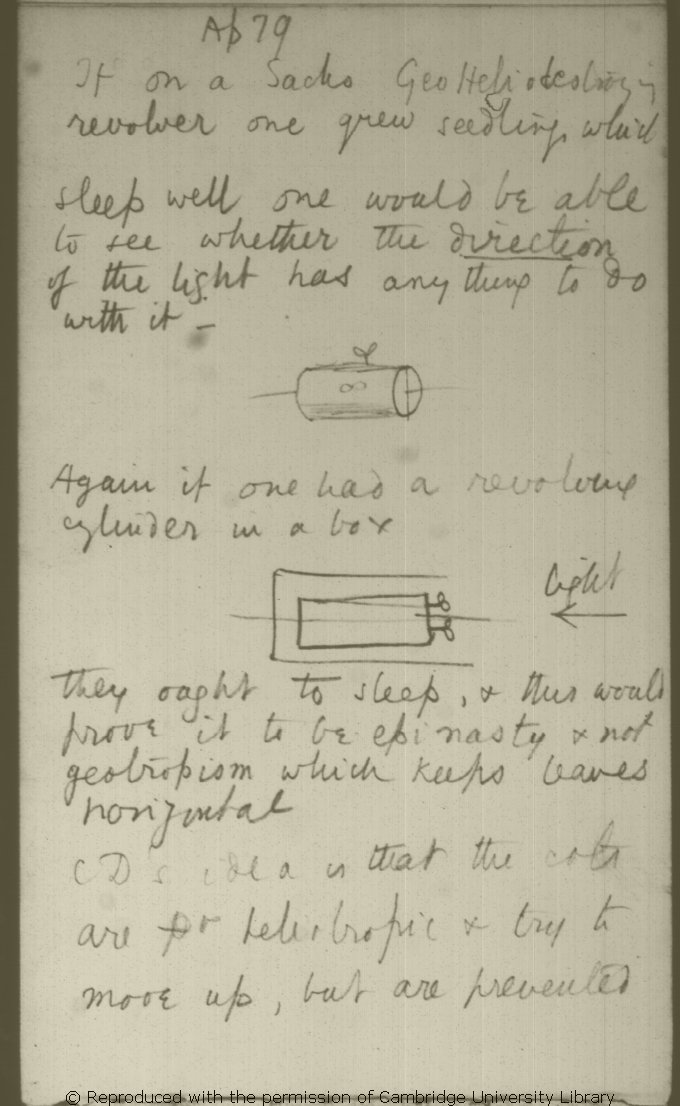 Ap 79
If on a Sachs GeoHeliodestroying
revolver one grew seedlings which
sleep well one would be able
to see whether the direction
of the light has anything to do
with it –
Again if one had a revolving
cylinder in a box
light
they ought to sleep, & this would
prove it to be epinasty & not
geotropism which keeps leaves
horizontal
CD's idea is that the cots
are heliotropic & try to
move up, but are prevented
© Reproduced with the permission of Cambridge University Library